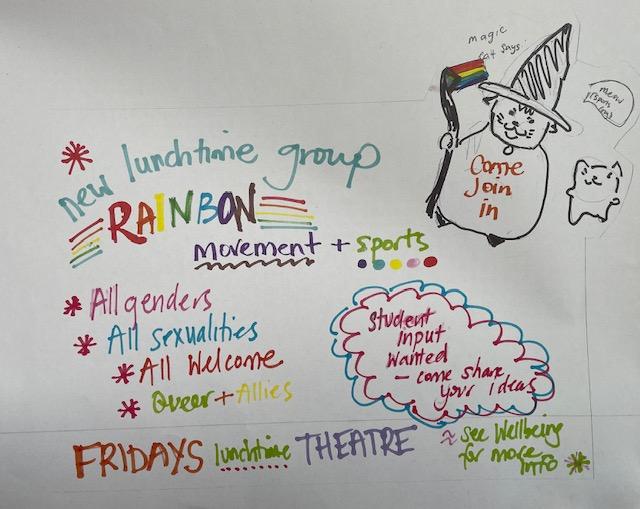 magic
cat says
meow
sports
Come
Join
in
* new lunchtime group
RAINBOW
movement + sports
* All genders
* All sexualities
* All Welcome
* Queer + Allies
Student
input
wanted
– come share
your ideas
FRIDAYS lunchtime THEATRE
≈ see Wellbeing
for more
info *